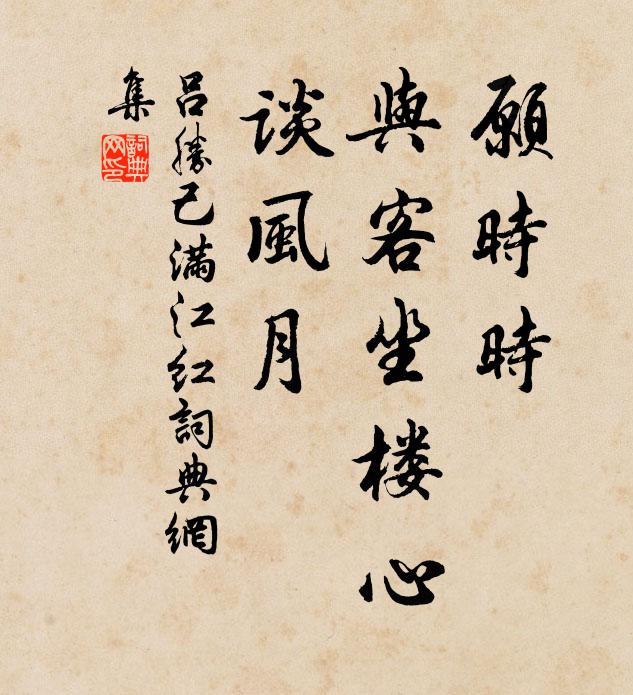 願時時
與客坐楼心
談風月
吕勝己满江红詞典網
集
詞典
网印